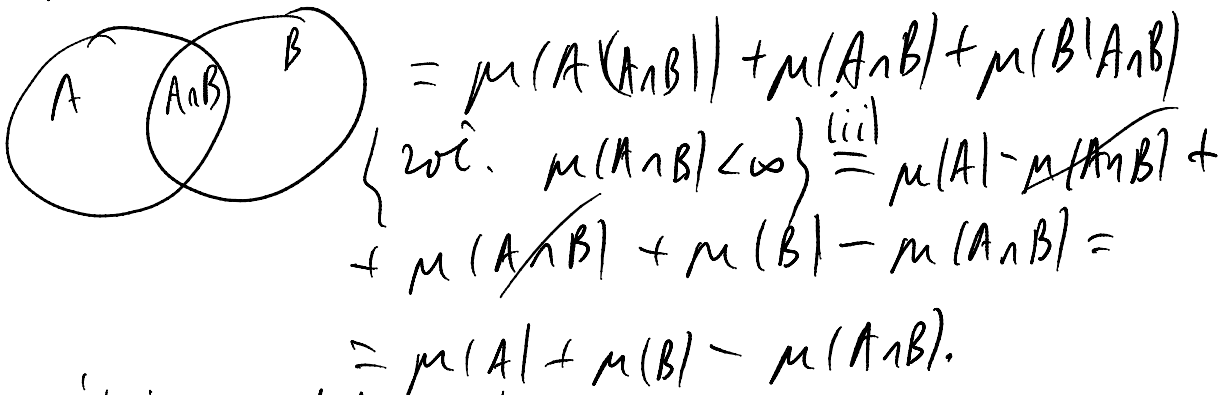 A A∩B B = μ(A\(A∩B)) + μ(A∩B) + μ(B\A∩B)
μ(A∩B) < ∞} (ii) = μ(A) - μ(A∩B) +
+ μ(A∩B) + μ(B) - μ(A∩B) =
= μ(A) + μ(B) - μ(A∩B).